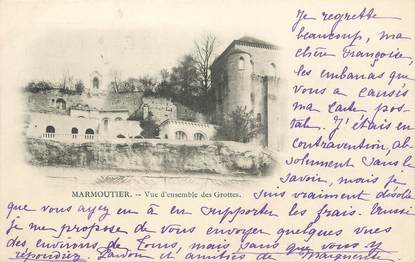 Je regrette
beaucoup, ma
chère Françoise,
les embarras que
vous a causés
ma carte pos-
tale. J'étais en
contravention, ab-
solument sans le
savoir, mais je
suis vraiment désolée
MARMOUTIER. — Vue d'ensemble des Grottes.
que vous ayez eu à en supporter les frais.
je me propose de vous envoyer quelques vues
des environs de Tours, mais sans que vous y
répondiez. Pardon et amitiés de Marguerite.